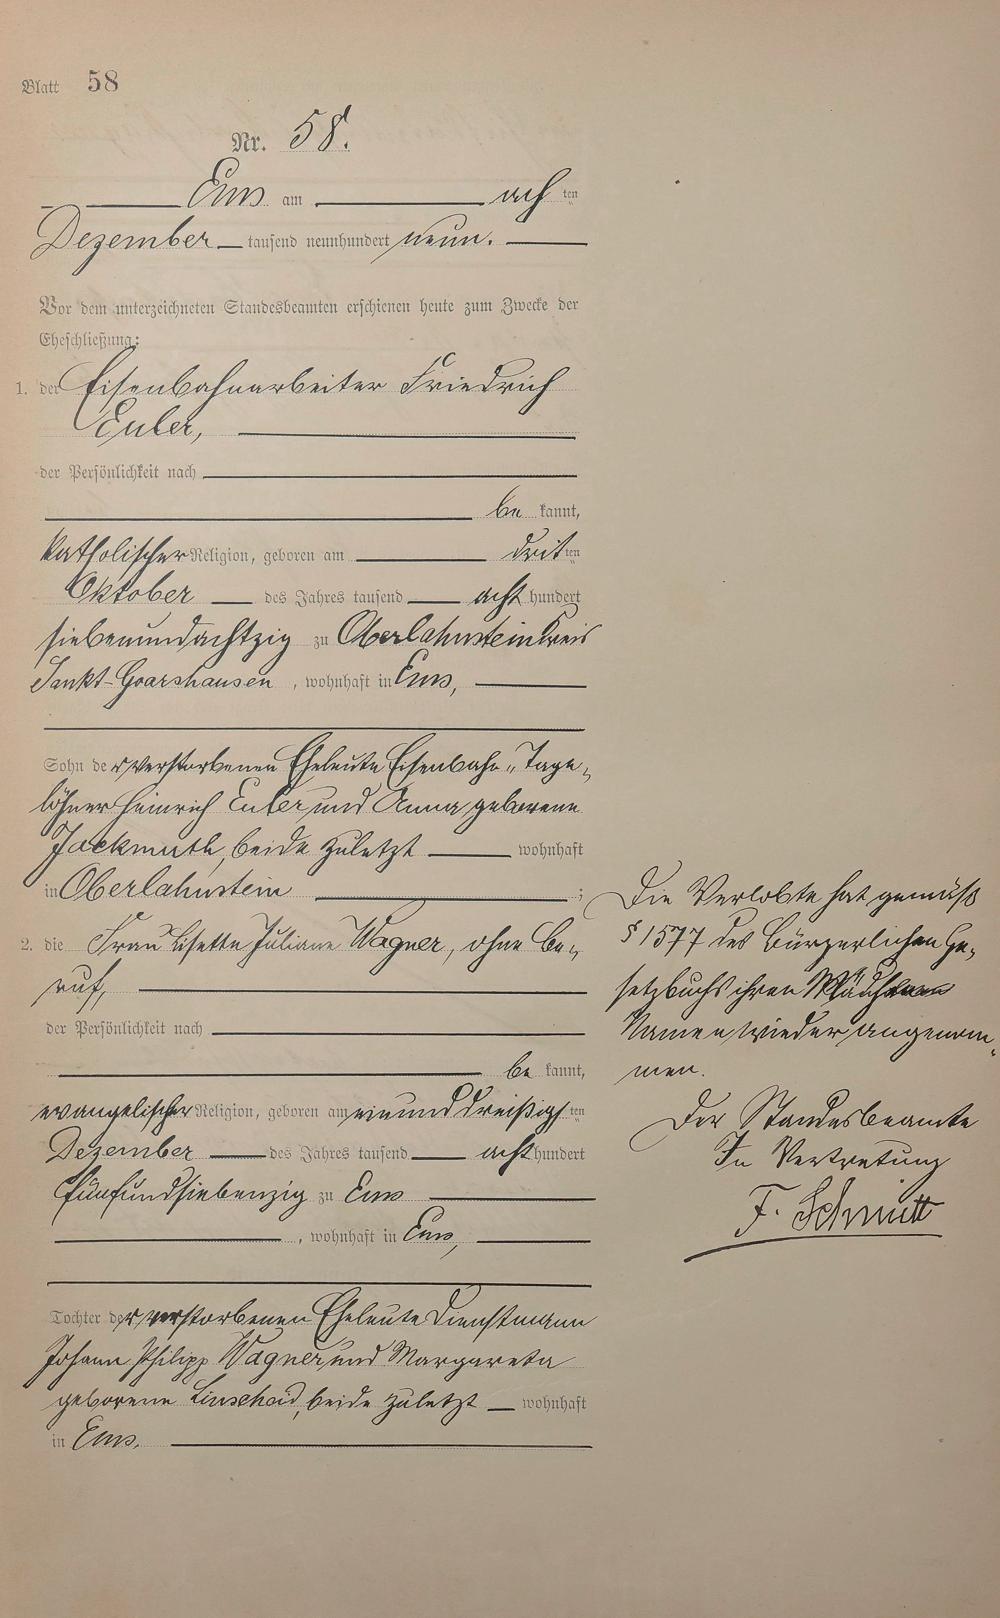 Blatt 58
Nr. 58.
Ems am ach ten
Dezember tausend neunhundert neun.
Vor dem unterzeichneten Standesbeamten erschienen heute zum Zwecke der
Eheschließung:
1. der Eisenbahnarbeiter Friedrich
Euler,
der Persönlichkeit nach
be kannt,
katholischer Religion, geboren am drit ten
Oktober des Jahres tausend acht hundert
siebenundachtzig zu Oberlahnstein Kreis
Sankt-Goarshausen, wohnhaft in Ems,
Sohn der verstorbenen Eheleute Eisenbahn-Tage-
löhner Heinrich Euler und Anna geborene
Jackmuth, beide zuletzt wohnhaft
in Oberlahnstein ;
2. die Frau Lisette Juliane Wagner, ohne Be-
ruf,
der Persönlichkeit nach
be kannt,
evangelischer Religion, geboren am einunddreißigs ten
Dezember des Jahres tausend acht hundert
fünfundsiebenzig zu Ems
, wohnhaft in Ems,
Tochter der verstorbenen Eheleute Dienstmann
Johann Philipp Wagner und Margareta
geborene Linscheid, beide zuletzt wohnhaft
in Ems.
Die Verlobte hat gemäß
§ 1577 des Bürgerlichen Ge-
setzbuchs ihren Mädchen
Namen wieder angenom-
men.
Der Standesbeamte
In Vertretung
F. Schmitt